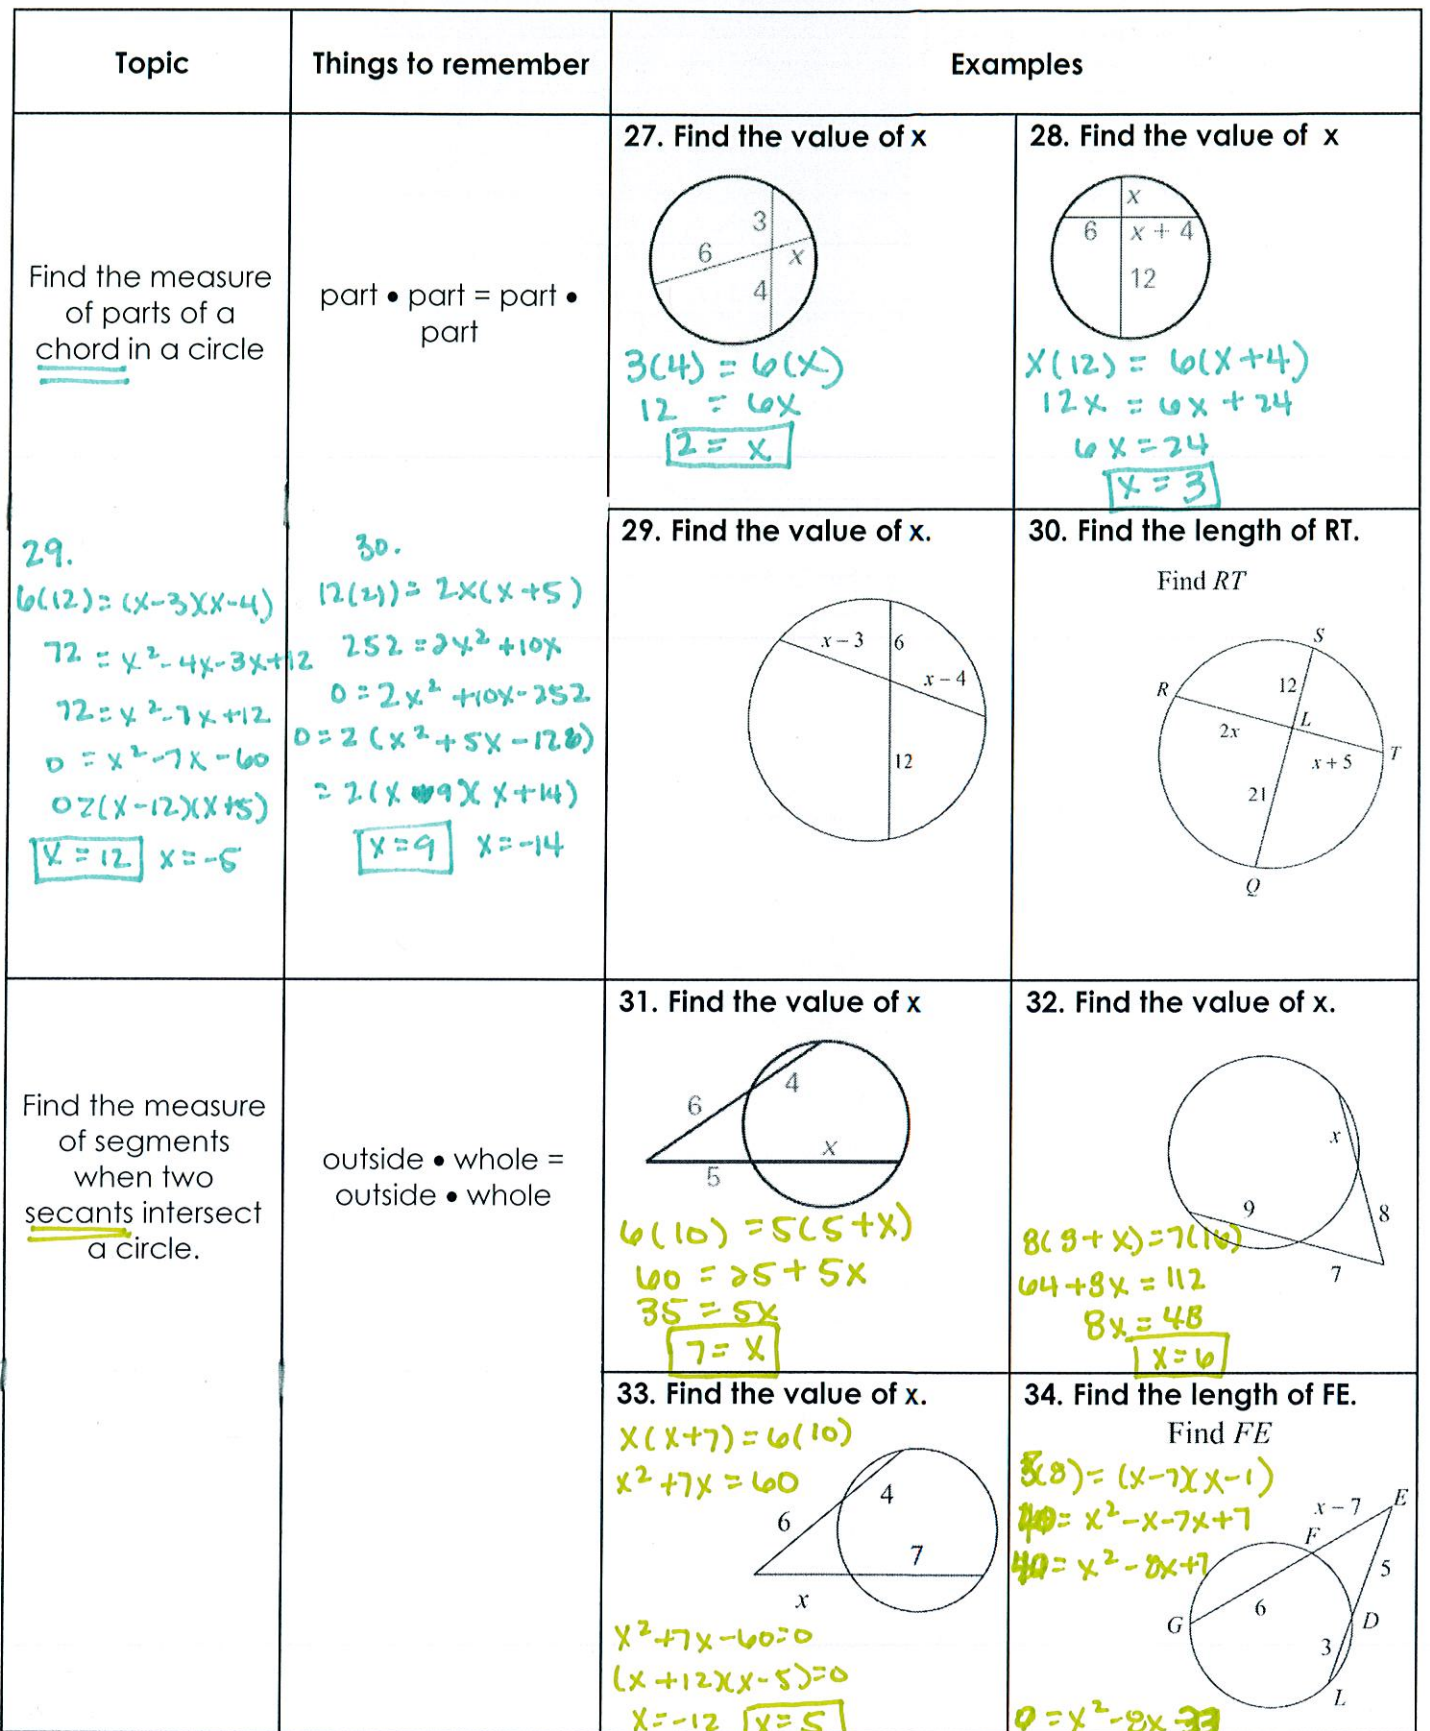 Topic
Things to remember
Examples
Find the measure
of parts of a
chord in a circle
part • part = part •
part
27. Find the value of x
3
6
x
4
3(4) = 6(x)
12 = 6x
2 = x
28. Find the value of x
x
6
x + 4
12
x(12) = 6(x+4)
12x = 6x + 24
6x = 24
x = 3
29.
6(12) = (x-3)(x-4)
72 = x²-4x-3x+12
72 = x²-7x+12
0 = x²-7x-60
0=(x-12)(x+5)
x = 12 x = -5
30.
12(21) = 2x(x+5)
252 = 2x² + 10x
0 = 2x² + 10x - 252
0 = 2(x² + 5x - 126)
= 2(x - 9)(x + 14)
x = 9 x = -14
29. Find the value of x.
x – 3
6
x – 4
12
30. Find the length of RT.
Find RT
S
R
12
L
2x
T
x + 5
21
Q
Find the measure
of segments
when two
secants intersect
a circle.
outside • whole =
outside • whole
31. Find the value of x
4
6
x
5
6(10) = 5(5+x)
60 = 25 + 5x
35 = 5x
7 = x
32. Find the value of x.
x
9
8
7
8(8+x)=7(16)
64+8x = 112
8x = 48
x = 6
33. Find the value of x.
x(x+7) = 6(10)
x² + 7x = 60
4
6
7
x
x² + 7x - 60 = 0
(x + 12)(x - 5) = 0
x = -12 x = 5
34. Find the length of FE.
Find FE
5(8) = (x-7)(x-1)
40 = x² - x - 7x + 7
40 = x² - 8x + 7
x – 7
E
F
5
6
G
D
3
L
0 = x² - 8x - 33